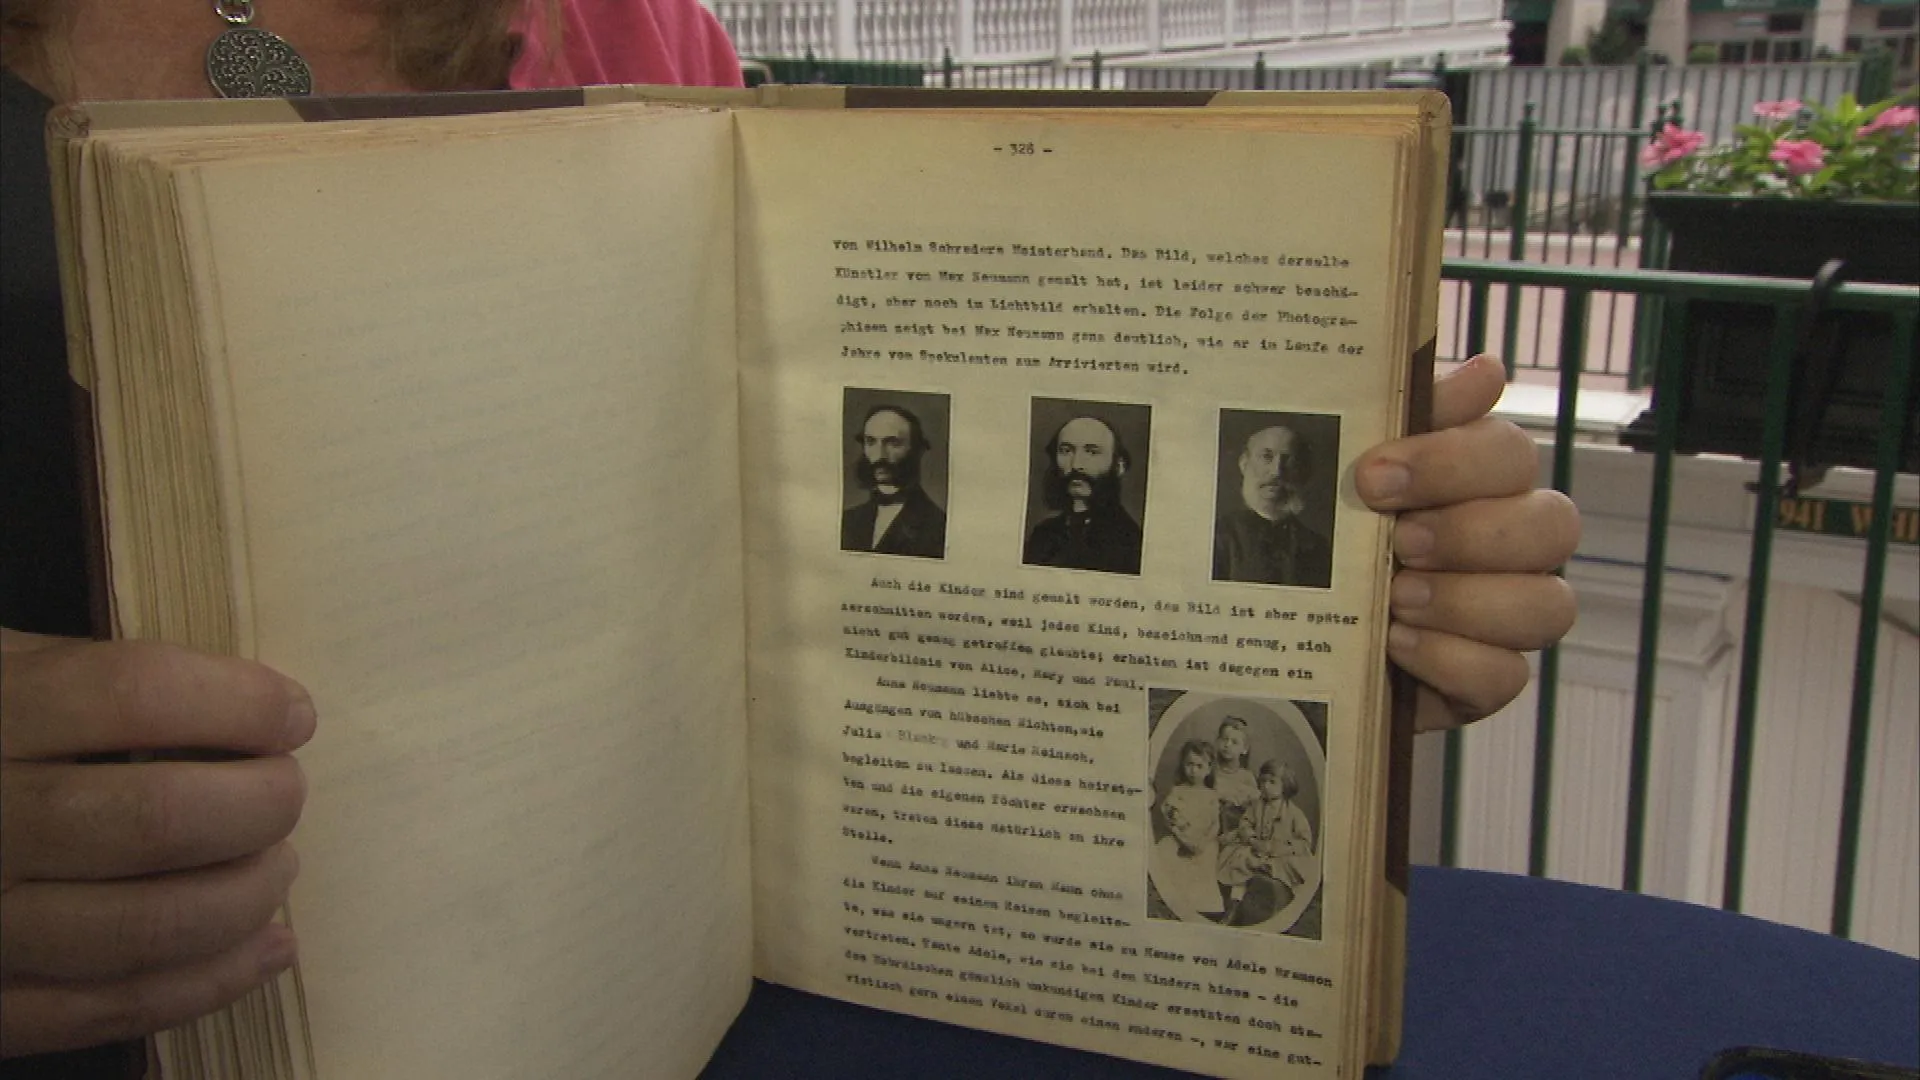 - 328 -
von Wilhelm Schreders Meisterhand. Das Bild, welches derselbe
Künstler von Max Neumann gemalt hat, ist leider schwer beschä-
digt, aber noch im Lichtbild erhalten. Die Folge der Photogra-
phieen zeigt bei Max Neumann ganz deutlich, wie er im Laufe der
Jahre vom Spekulanten zum Arrivierten wird.
Auch die Kinder sind gemalt worden, das Bild ist aber später
zerschnitten worden, weil jedes Kind, bezeichnend genug, sich
nicht gut genug getroffen glaubte; erhalten ist dagegen ein
Kinderbildnis von Alice, Mary und Paul.
Anna Neumann liebte es, sich bei
Ausgängen von hübschen Nichten, wie
Julia und Marie Reinach,
begleiten zu lassen. Als diese heirate-
ten und die eigenen Töchter erwachsen
waren, traten diese natürlich an ihre
Stelle.
Wenn Anna Neumann ihren Mann ohne
die Kinder auf seinen Reisen begleite-
te, was sie ungern tat, so wurde sie zu Hause von Adele Bramson
vertreten. Tante Adele, wie sie bei den Kindern hiess - die
des Hebräischen gänzlich unkundigen Kinder ersetzten doch ata-
vistisch gern einen Vokal durch einen anderen -, war eine gut-
941